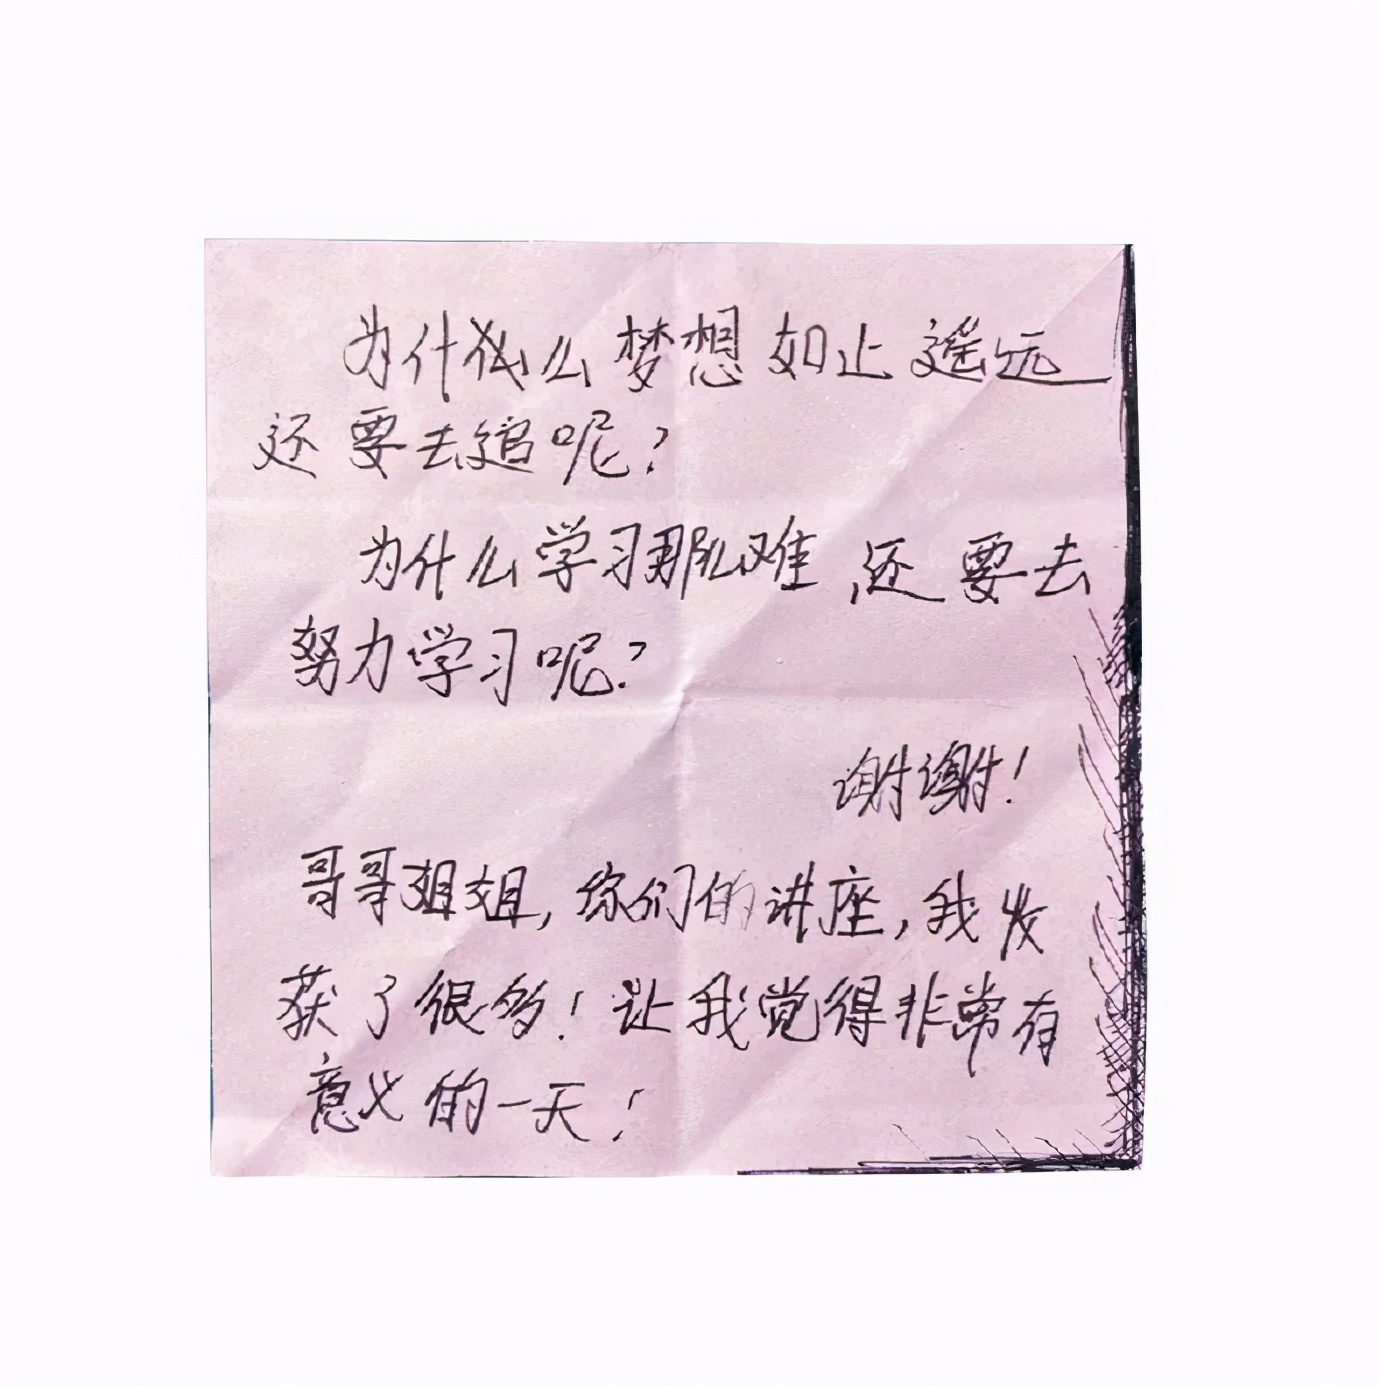 为什么梦想如止遥远
还要去追呢?
为什么学习那么难,还要去
努力学习呢?
谢谢!
哥哥姐姐,你们的讲座,我收
获了很多!让我觉得非常有
意义的一天!